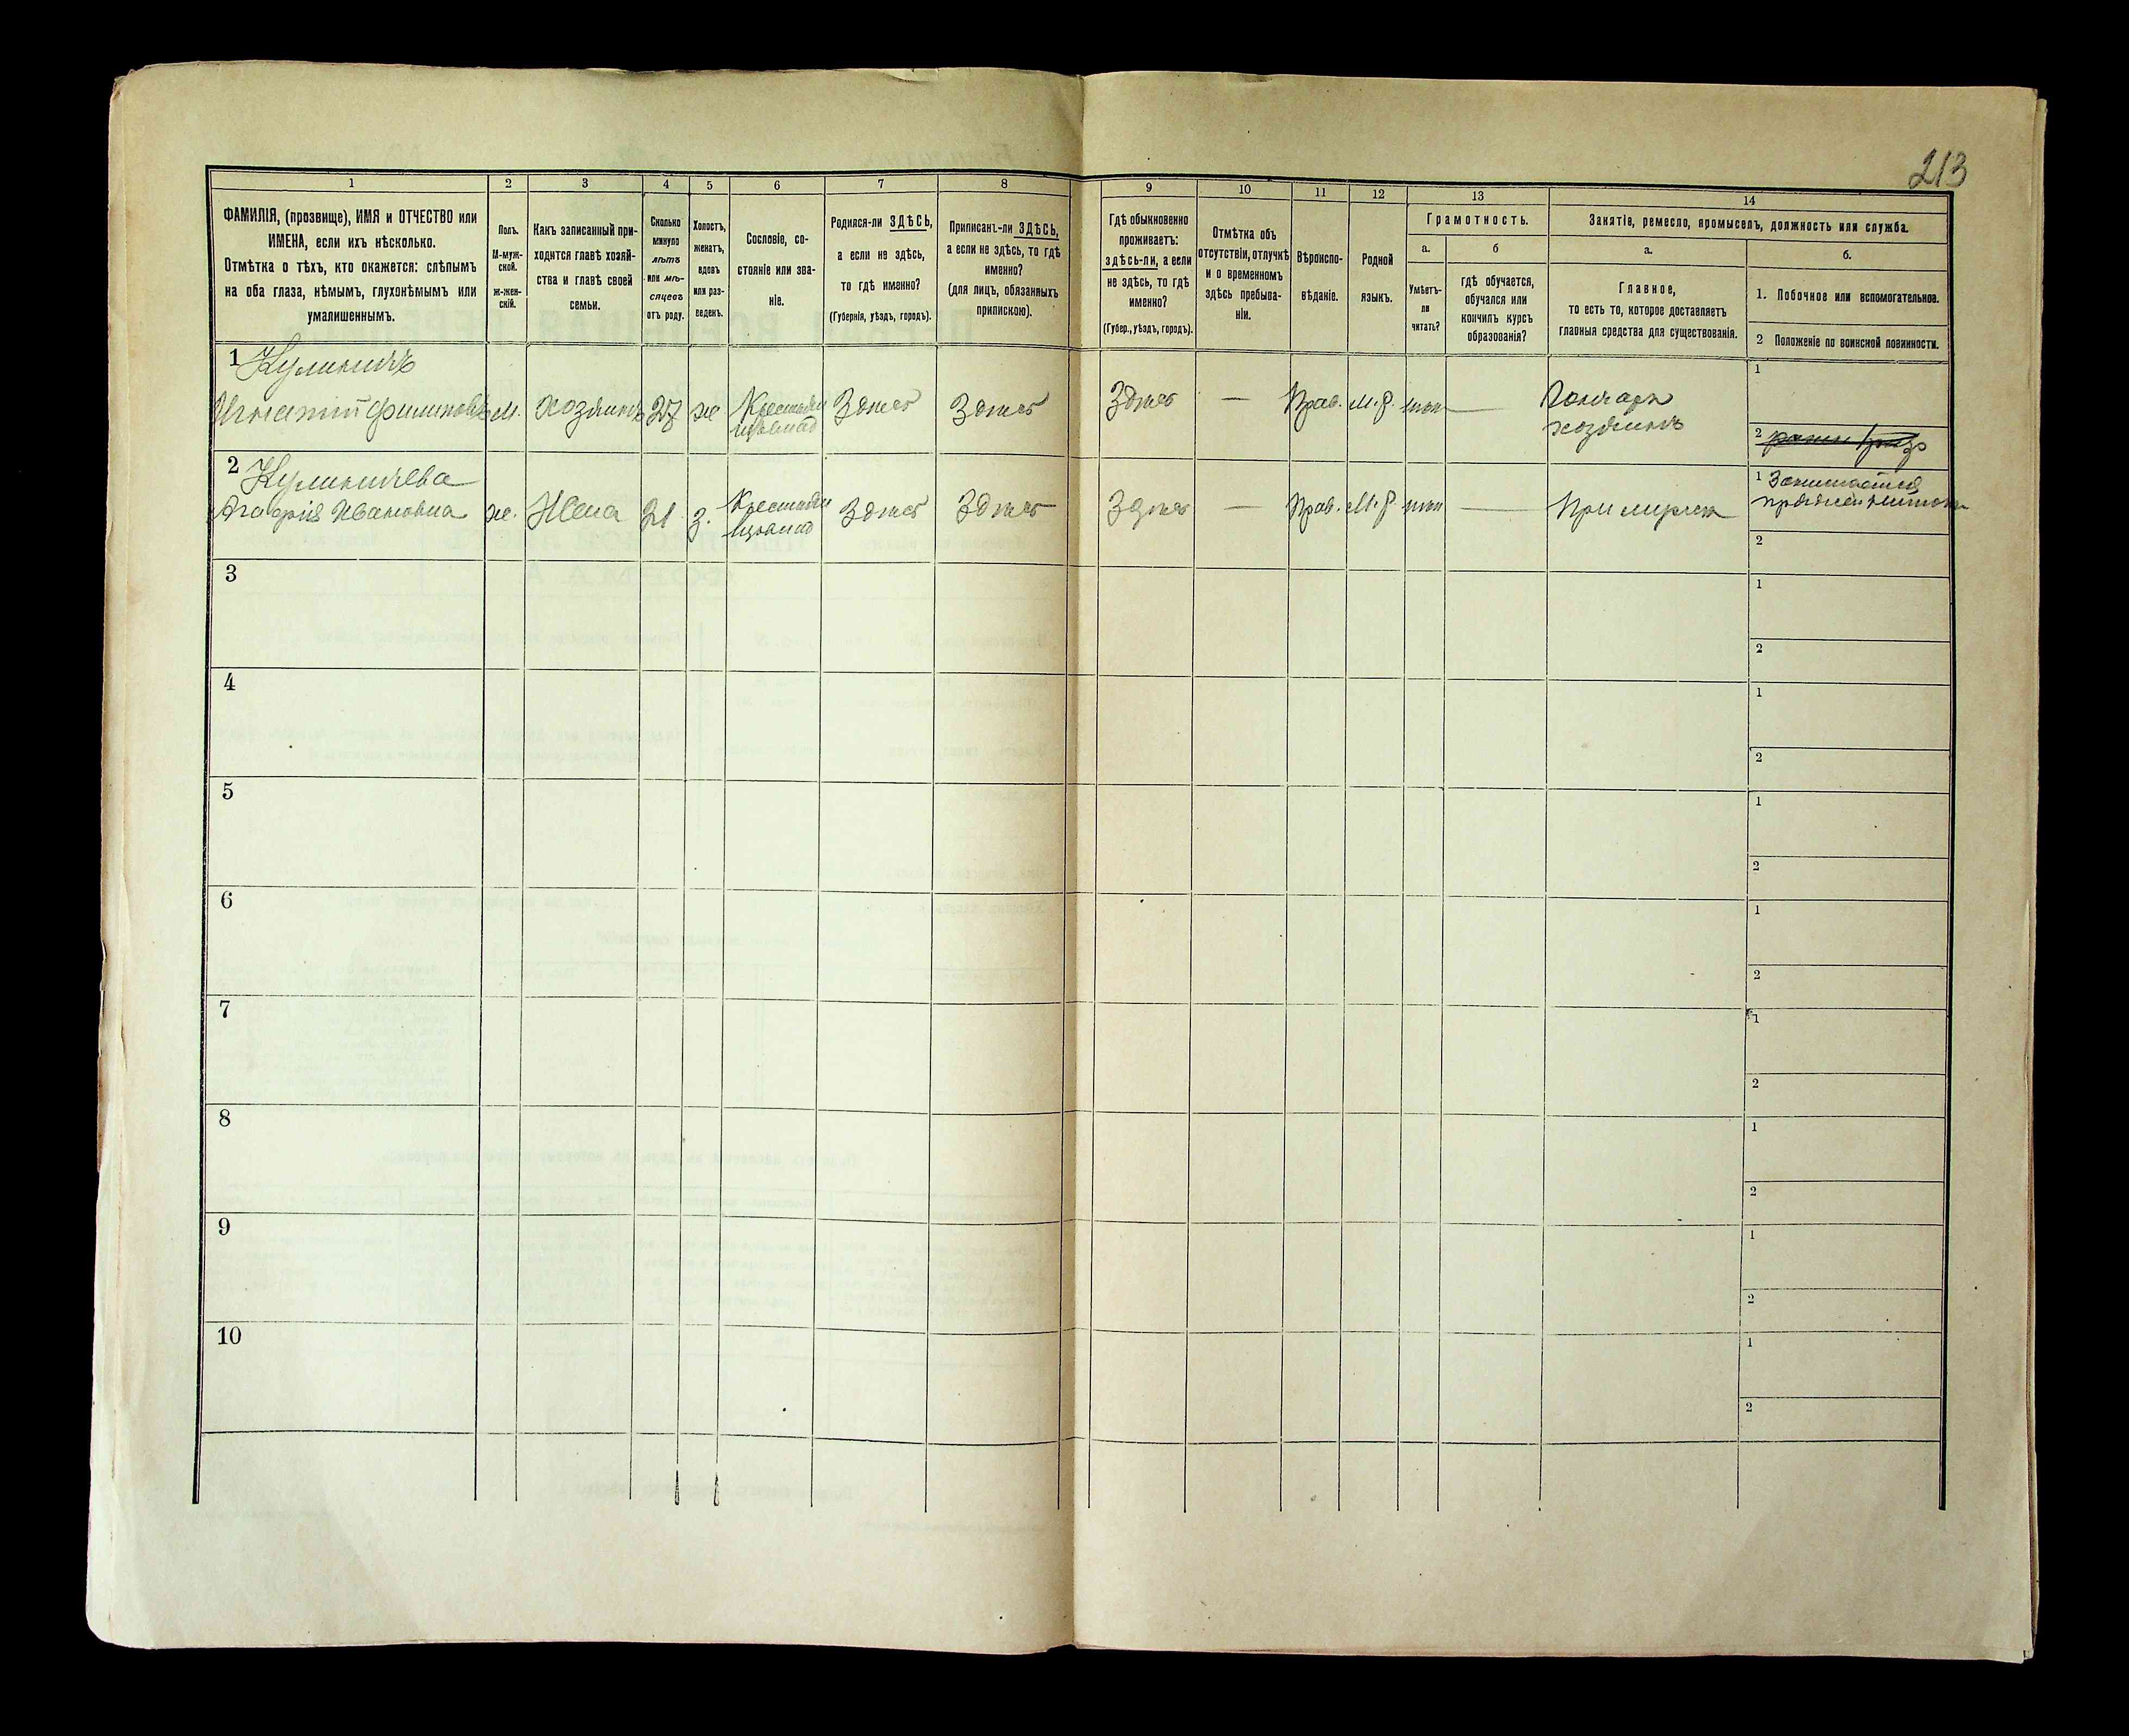 213
1
2
3
4
5
6
7
8
9
10
11
12
13
14
ФАМИЛІЯ, (прозвище), ИМЯ и ОТЧЕСТВО или
ИМЕНА, если ихъ нѣсколько.
Отмѣтка о тѣхъ, кто окажется: слѣпымъ
на оба глаза, нѣмымъ, глухонѣмымъ или
умалишеннымъ.
Полъ.
М-муж-
ской.
ж-жен-
скій.
Какъ записанный при-
ходится главѣ хозяй-
ства и главѣ своей
семьи.
Сколько
минуло
лѣтъ
или мѣ-
сяцевъ
отъ роду.
Холостъ,
женатъ,
вдовъ
или раз-
веденъ.
Сословіе, со-
стояніе или зва-
ніе.
Родился-ли ЗДѢСЬ,
а если не здѣсь,
то гдѣ именно?
(Губернія, уѣздъ, городъ).
Приписанъ-ли ЗДѢСЬ,
а если не здѣсь, то гдѣ
именно?
(для лицъ, обязанныхъ
припискою).
Гдѣ обыкновенно
проживаетъ:
здѣсь-ли, а если
не здѣсь, то гдѣ
именно?
(Губер., уѣздъ, городъ).
Отмѣтка объ
отсутствіи, отлучкѣ
и о временномъ
здѣсь пребыва-
ніи.
Вѣроиспо-
вѣданіе.
Родной
языкъ.
Грамотность.
а.
Умѣетъ-
ли
читать?
б
гдѣ обучается,
обучался или
кончилъ курсъ
образованія?
Занятіе, ремесло, промыселъ, должность или служба.
а.
Главное,
то есть то, которое доставляетъ
главныя средства для существованія.
б.
1. Побочное или вспомогательное.
2 Положеніе по воинской повинности.
1 Кулиничъ
Игнатій Филиповъ м. хозяинъ 27 ж Крестьян Здѣсь Здѣсь Здѣсь — Прав. М.р. нѣтъ — Гончаръ
хозяинъ
1
2
2 Кулиничева
Агафія Ивановна ж. Жена 21 з. Крестьян Здѣсь Здѣсь Здѣсь — Прав. М.р. нѣтъ — При мужѣ
1 Занимается
2
3
1
2
4
1
2
5
1
2
6
1
2
7
1
2
8
1
2
9
1
2
10
1
2